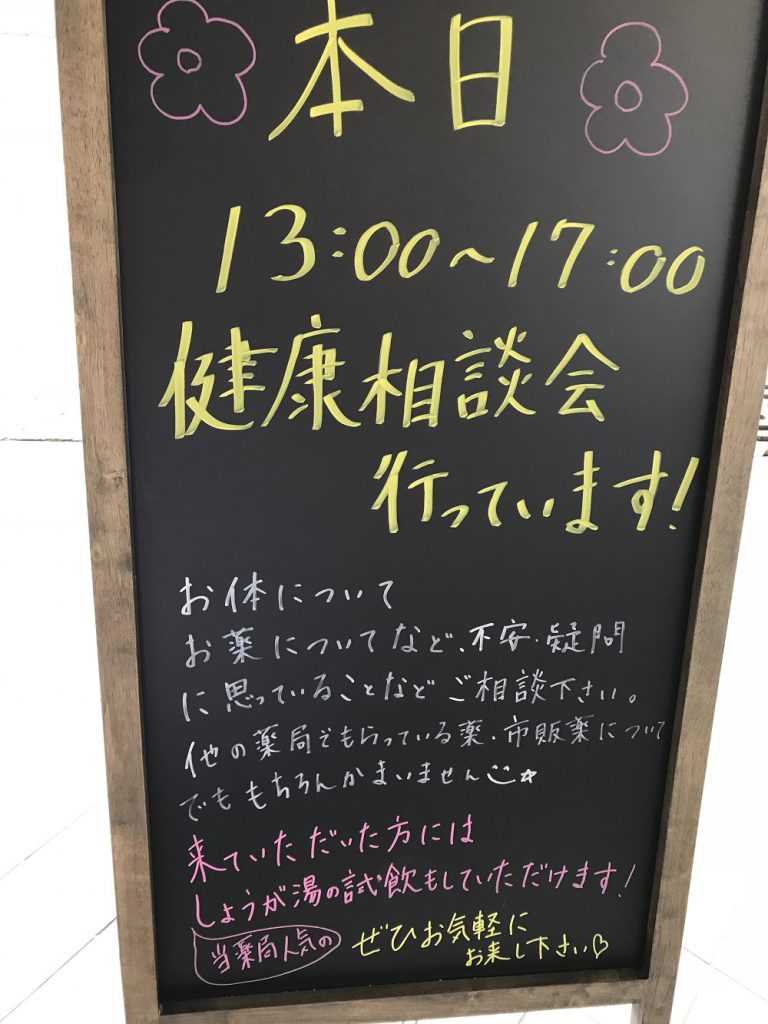 本日
13:00～17:00
健康相談会
行っています!
お体について
お薬についてなど、不安・疑問
に思っていることなどご相談下さい。
他の薬局でもらっている薬・市販薬について
でももちろんかまいません
来ていただいた方には
しょうが湯の試飲もしていただけます!
当薬局人気の
ぜひお気軽に
お来し下さい♡